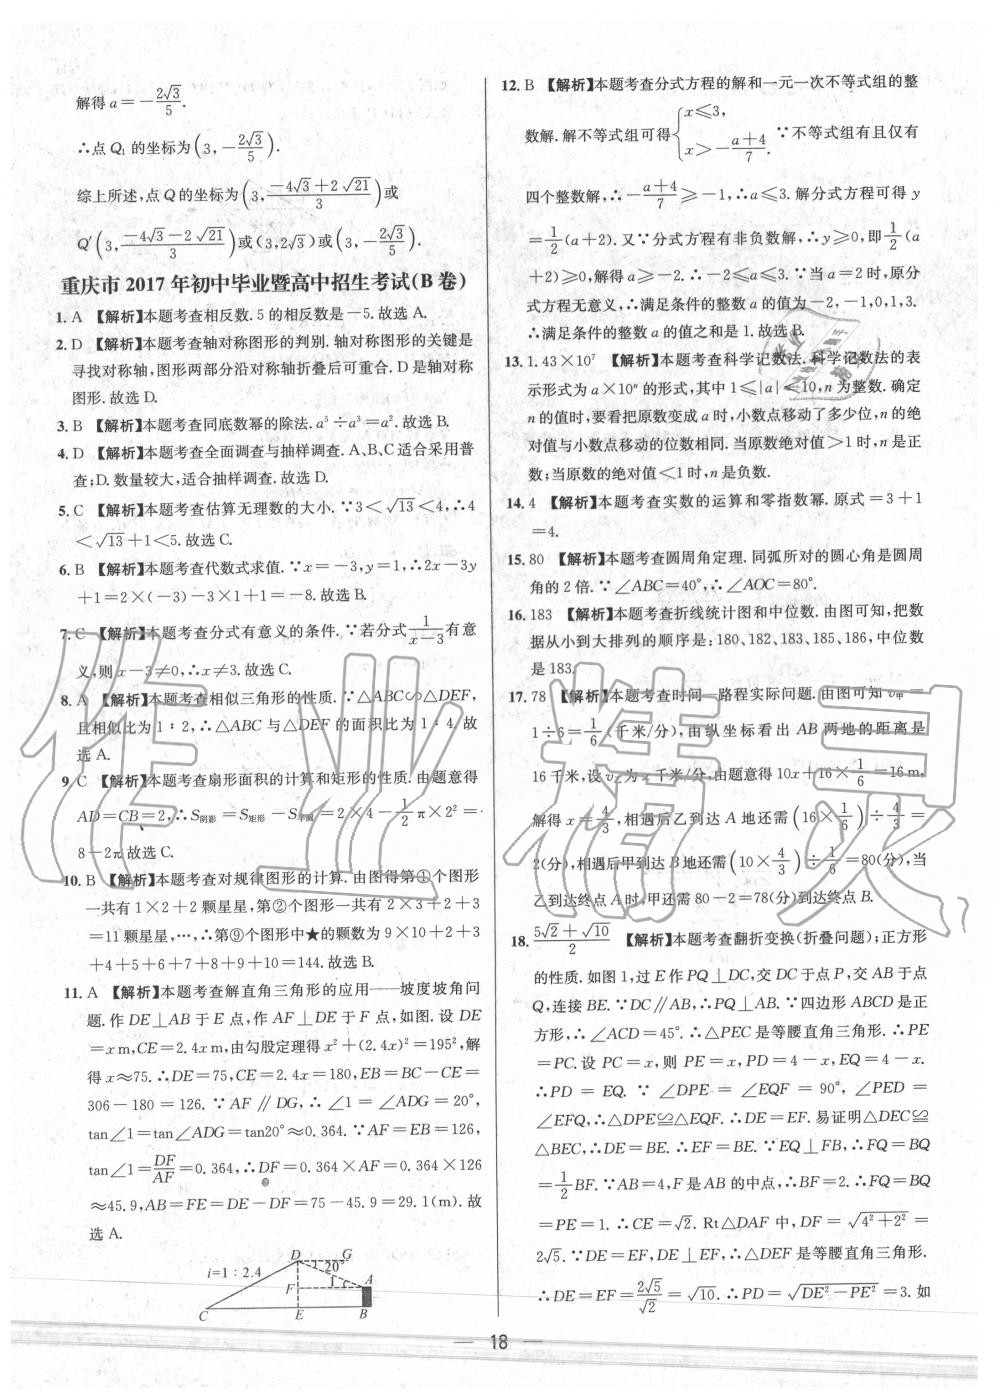 解得a=-2√3/5.
∴点Q₁的坐标为(3,-2√3/5).
综上所述,点Q的坐标为(3,(-4√3+2√21)/3)或
Q′(3,(-4√3-2√21)/3)或(3,2√3)或(3,-2√3/5).
重庆市2017年初中毕业暨高中招生考试(B卷)
1. A 【解析】本题考查相反数.5的相反数是-5.故选A.
2. D 【解析】本题考查轴对称图形的判别.轴对称图形的关键是
寻找对称轴,图形两部分沿对称轴折叠后可重合.D是轴对称
图形.故选D.
3. B 【解析】本题考查同底数幂的除法.a⁵÷a³=a².故选B.
4. D 【解析】本题考查全面调查与抽样调查.A、B、C适合采用普
查;D.数量较大,适合抽样调查.故选D.
5. C 【解析】本题考查估算无理数的大小.∵3<√13<4,∴4
<√13+1<5.故选C.
6. B 【解析】本题考查代数式求值.∵x=-3,y=1,∴2x-3y
+1=2×(-3)-3×1+1=-8.故选B.
7. C 【解析】本题考查分式有意义的条件.∵若分式1/(x-3)有意
义,则x-3≠0,∴x≠3.故选C.
8. A 【解析】本题考查相似三角形的性质.∵△ABC∽△DEF,
且相似比为1∶2,∴△ABC与△DEF的面积比为1∶4.故
选A.
9. C 【解析】本题考查扇形面积的计算和矩形的性质.由题意得
AD=CB=2,∴S阴影=S矩形-S半圆=2×4-1/2π×2²=
8-2π.故选C.
10. B 【解析】本题考查对规律图形的计算.由图得第①个图形
一共有1×2+2颗星星,第②个图形一共有2×3+2+3
=11颗星星,…,∴第⑨个图形中★的颗数为9×10+2+3
+4+5+6+7+8+9+10=144.故选B.
11. A 【解析】本题考查解直角三角形的应用——坡度坡角问
题.作DE⊥AB于E点,作AF⊥DE于F点,如图.设DE
=x m,CE=2.4x m,由勾股定理得x²+(2.4x)²=195²,解
得x≈75.∴DE=75,CE=2.4x=180,EB=BC-CE=
306-180=126.∵AF∥DG,∴∠1=∠ADG=20°,
tan∠1=tan∠ADG=tan20°≈0.364.∵AF=EB=126,
tan∠1=DF/AF=0.364,∴DF=0.364×AF=0.364×126
≈45.9,AB=FE=DE-DF=75-45.9=29.1(m).故
选A.
D G
i=1:2.4
20°
F 1 A
C E B
12. B 【解析】本题考查分式方程的解和一元一次不等式组的整
数解.解不等式组可得{x≤3, x>-(a+4)/7. ∵不等式组有且仅有
四个整数解,∴-(a+4)/7≥-1,∴a≤3.解分式方程可得y
=1/2(a+2).又∵分式方程有非负数解,∴y≥0,即1/2(a
+2)≥0,解得a≥-2.∴-2≤a≤3.∵当a=2时,原分
式方程无意义,∴满足条件的整数a的值为-2,-1,0,1,3.
∴满足条件的整数a的值之和是1.故选B.
13. 1.43×10⁷ 【解析】本题考查科学记数法.科学记数法的表
示形式为a×10ⁿ的形式,其中1≤|a|<10,n为整数.确定
n的值时,要看把原数变成a时,小数点移动了多少位,n的绝
对值与小数点移动的位数相同.当原数绝对值>1时,n是正
数;当原数的绝对值<1时,n是负数.
14. 4 【解析】本题考查实数的运算和零指数幂.原式=3+1
=4.
15. 80 【解析】本题考查圆周角定理.同弧所对的圆心角是圆周
角的2倍.∵∠ABC=40°,∴∠AOC=80°.
16. 183 【解析】本题考查折线统计图和中位数.由图可知,把数
据从小到大排列的顺序是:180、182、183、185、186,中位数
是183.
17. 78 【解析】本题考查时间—路程实际问题.由图可知v甲=
1÷6=1/6(千米/分),由纵坐标看出AB两地的距离是
16千米,设v乙为x千米/分,由题意得10x+16×1/6=16 m,
解得x=4/3,相遇后乙到达A地还需(16×1/6)÷4/3=
2(分),相遇后甲到达B地还需(10×4/3)÷1/6=80(分),当
乙到达终点A时,甲还需80-2=78(分)到达终点B.
18. (5√2+√10)/2 【解析】本题考查翻折变换(折叠问题);正方形
的性质.如图1,过E作PQ⊥DC,交DC于点P,交AB于点
Q,连接BE.∵DC∥AB,∴PQ⊥AB.∵四边形ABCD是正
方形,∴∠ACD=45°.∴△PEC是等腰直角三角形.∴PE
=PC.设PC=x,则PE=x,PD=4-x,EQ=4-x.
∴PD=EQ.∵∠DPE=∠EQF=90°,∠PED=
∠EFQ,∴△DPE≌△EQF.∴DE=EF.易证明△DEC≌
△BEC,∴DE=BE.∴EF=BE.∵EQ⊥FB,∴FQ=BQ
=1/2BF.∵AB=4,F是AB的中点,∴BF=2.∴FQ=BQ
=PE=1.∴CE=√2.Rt△DAF中,DF=√(4²+2²)=
2√5.∵DE=EF,DE⊥EF,∴△DEF是等腰直角三角形.
∴DE=EF=2√5/√2=√10.∴PD=√(DE²-PE²)=3.如
18
作业精灵